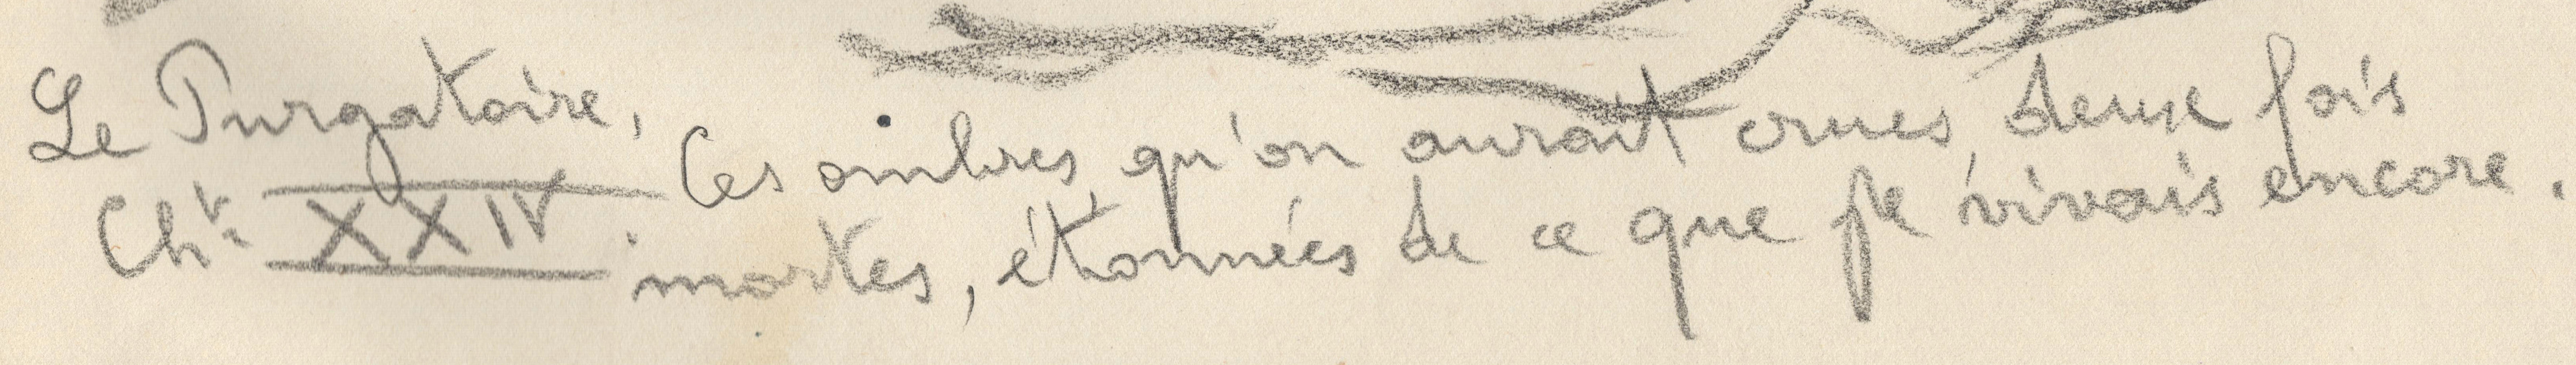 Le Purgatoire,
Cht. XXIV.
Ces ombres, qu'on aurait crues, deux fois
mortes, étonnées de ce que je vivais encore.